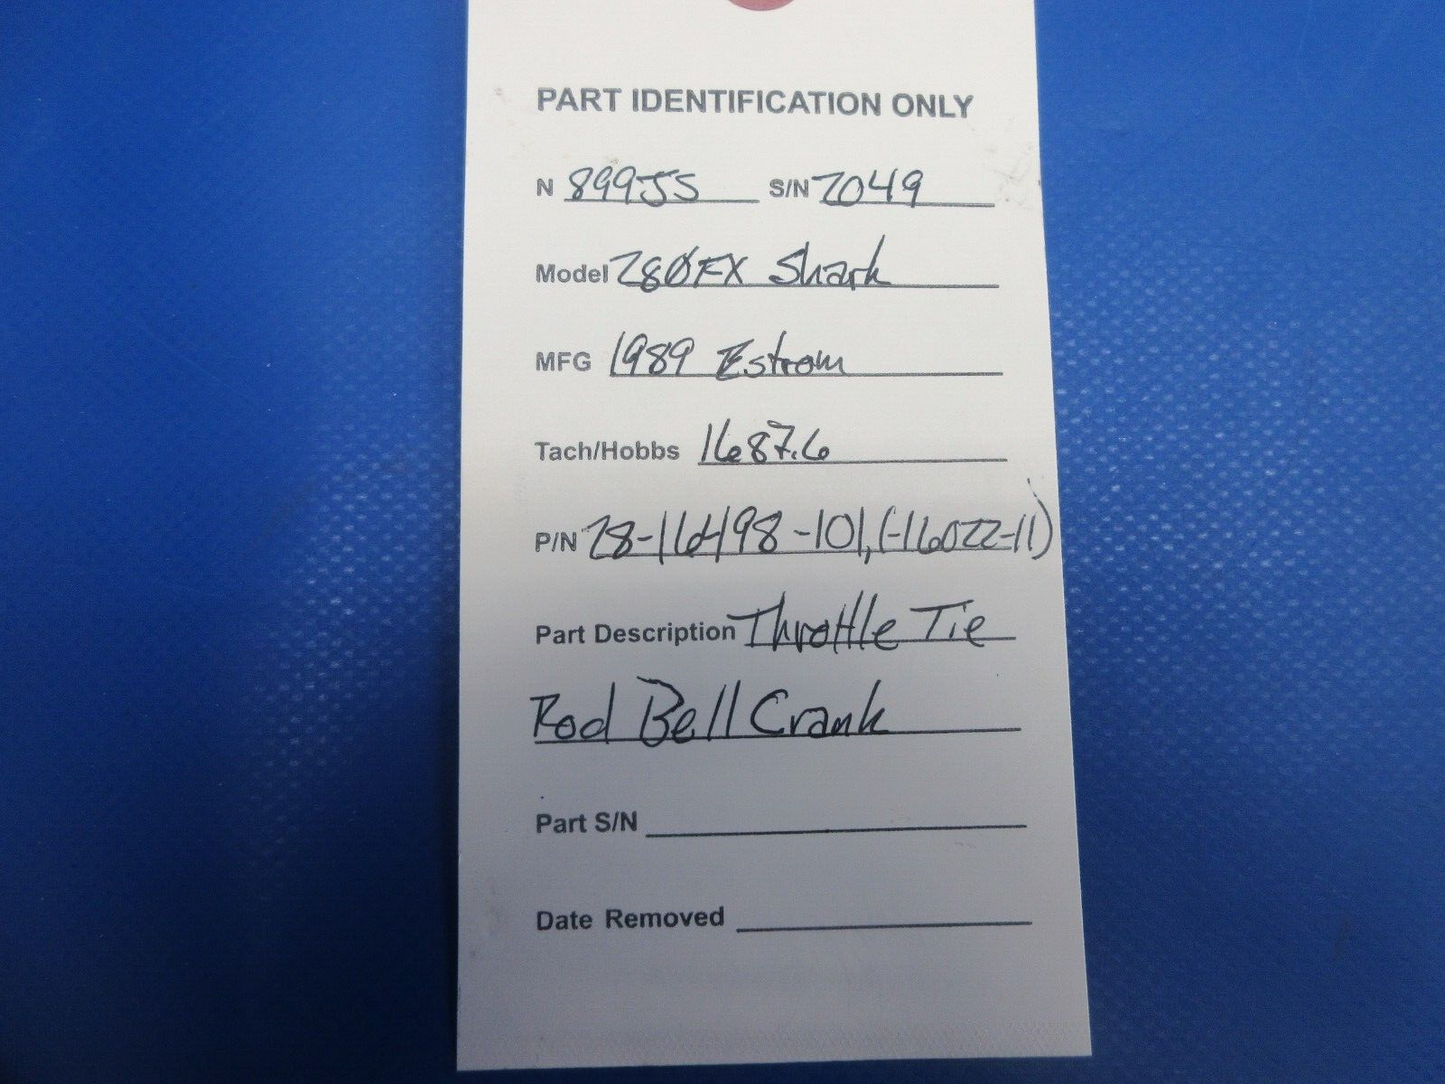 PART IDENTIFICATION ONLY
N 899JS S/N 2049
Model 280FX Shark
MFG 1989 Estrom
Tach/Hobbs 1687.6
P/N 28-16498-101, (-16022-11)
Part Description Throttle Tie
Rod Bell Crank
Part S/N
Date Removed